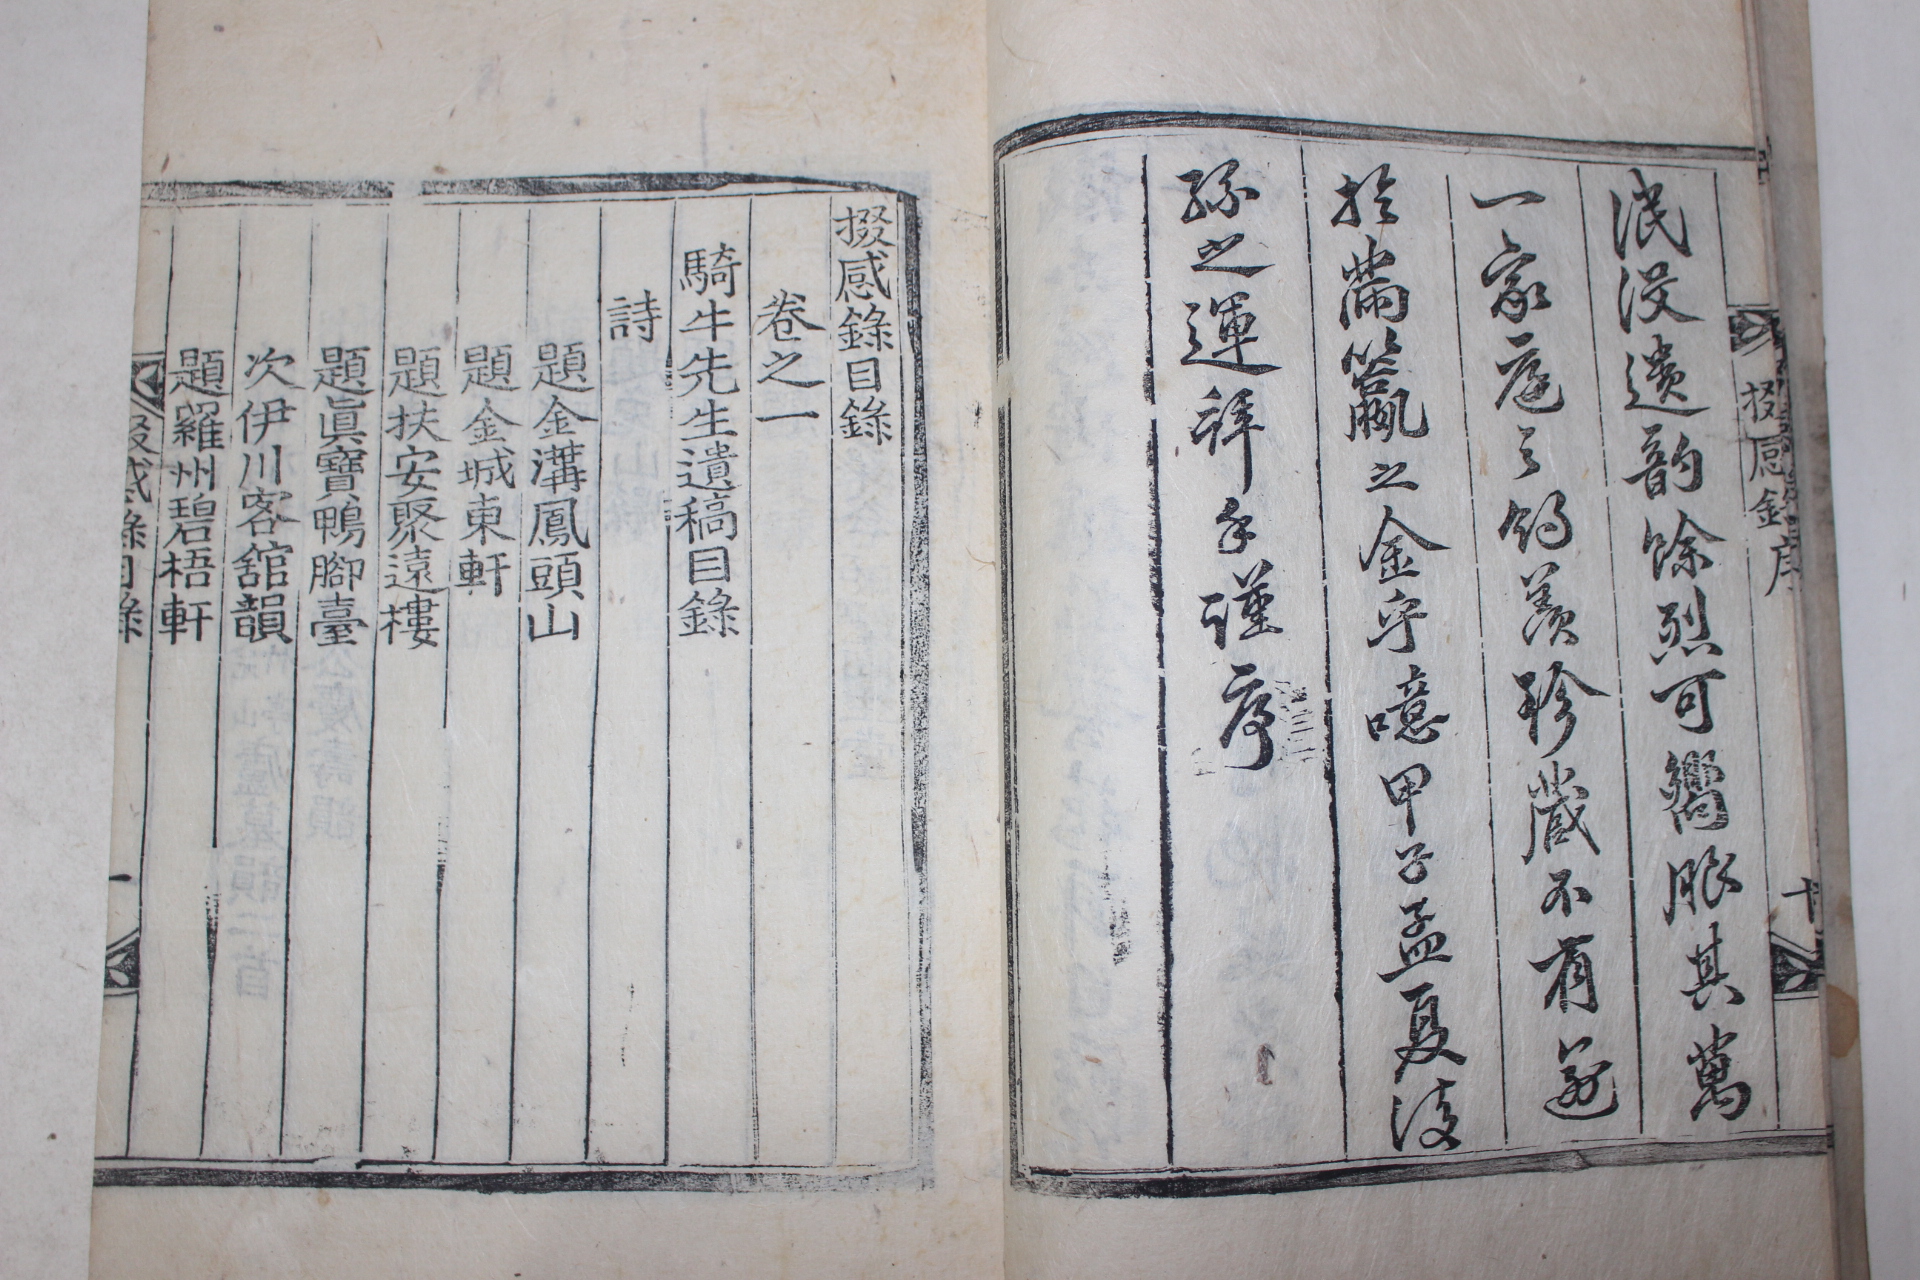 掇感錄序
十
泯沒遺韵餘烈可嚮眼其萬
一家庭之
珍藏不有逾
於滿籯之金乎噫甲子孟夏後
孫之運拜手謹序
掇感錄目錄
卷之一
騎牛先生遺稿目錄
詩
題金溝鳳頭山
題金城東軒
題扶安聚遠樓
題眞寶鴨腳臺
次伊川客舘韻
題羅州碧梧軒
掇感錄目錄
一